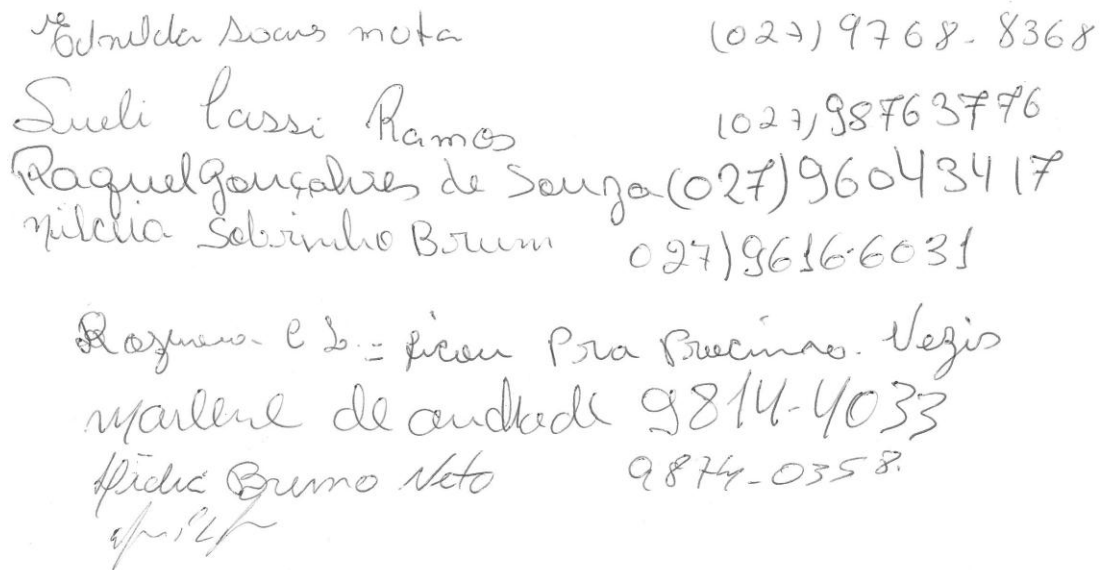 Ednilda soares mota (027) 9768-8368
Sueli Cassi Ramos (027) 98763776
Raquel Gonçalves de Souza (027) 96043417
Nilcéia Sobrinho Brum 027) 9616-6031
ficou Pra
Marlene de andrade 9814-4033
Bruno Neto 9874-0358.